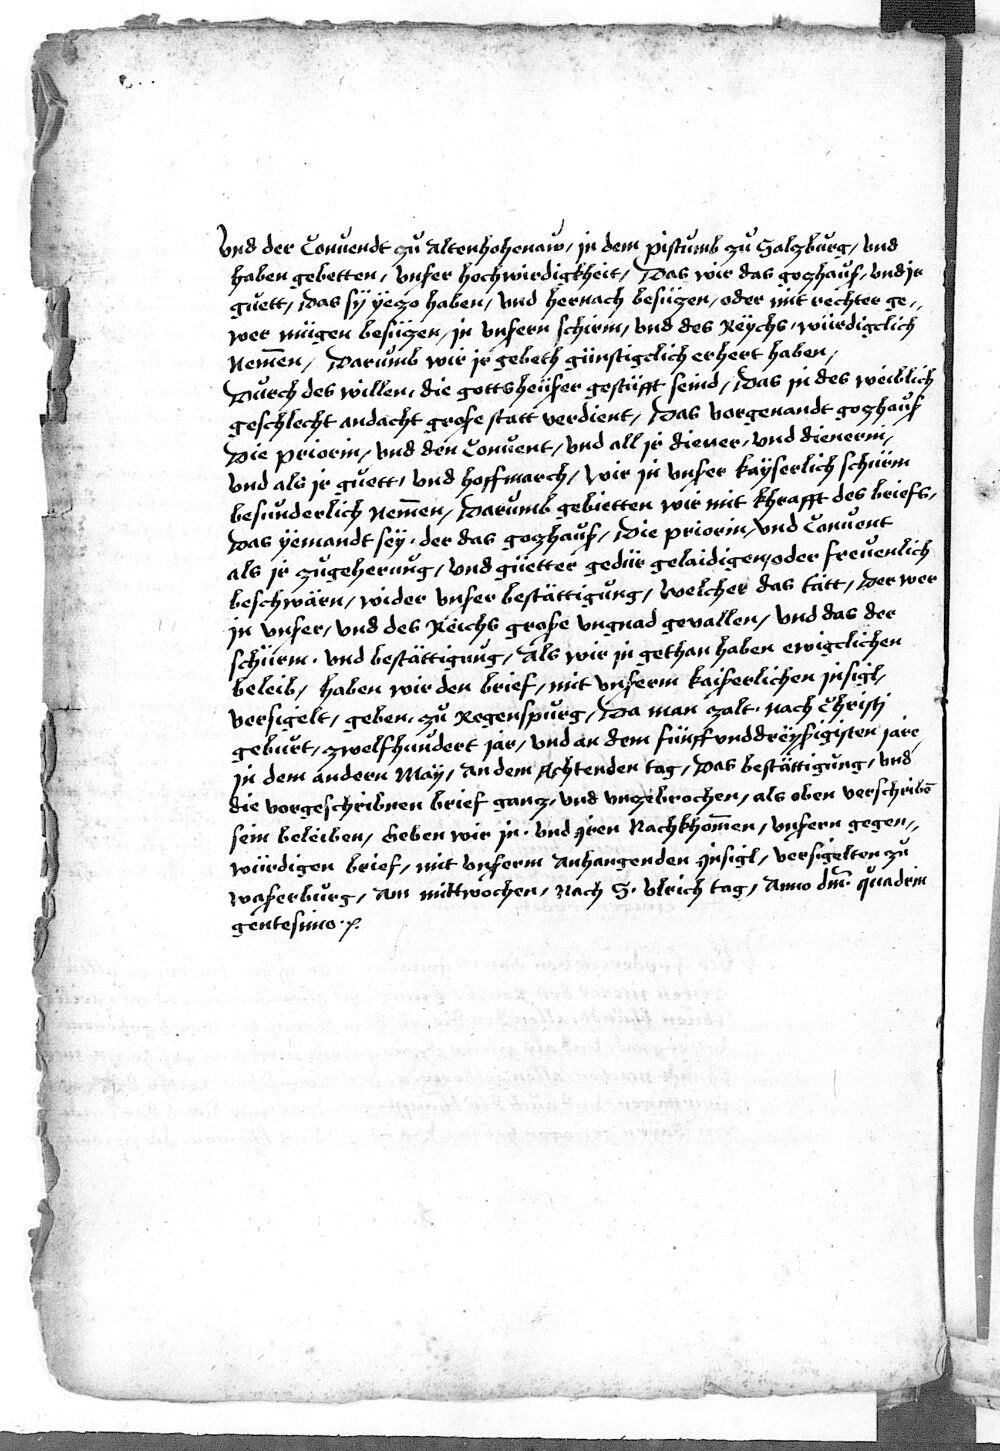 Vnd der Conuendt zu Altenhohenaw, in dem pistumb zu Salzburg, vnd
haben gebetten, vnser hochwirdigkheit, Das wir das gozhauß, vnd jr
guett, Das sÿ ÿezo haben, vnd hernach besüzen, oder mit rechter ge„
wer mügen besüzen, in vnsern schirm, vnd des Reÿchs, würdigclich
Nem̅en, Darumb wir jr gebeth günstigclich erhert haben,
Durch des willen, die gottsheüser gestüfft seind, Das in des weiblich
geschlecht andacht große statt verdient, Das vorgenandt gozhauß
Die priorin, vnd den Conuent, vnd all jr diener, vnd dienerin,
vnd als jr guett, vnd hoffmarch, wir in vnser kaÿserlich schürm
besunderlich Nem̅en, Darumb gebietten wir mit khrafft des briefs,
Das ÿemandt seÿ, der das gozhauß, Die priorin, vnd Conuent
als jr zugeherung, vnd güetter gedür gelaidigen, oder freuenlich
beschwärn, wider vnser bestättigung, welcher das tätt, Der wer
in vnser, vnd des Reichs große vngnad gevallen, vnd das der
schürm, vnd bestättigung, als wir in gethan haben ewigclichen
beleib, haben wir den brief, mit vnserm kaiserlichen insigl,
versigelt, geben, zu Regenspurg, Da man zalt, nach Christi
geburt, zwelfhundert jar, vnd an dem fünff vnd dreÿßigisten jare,
in dem andern Maÿ, an dem Achtenden tag, Das bestättigung, vnd
die vorgeschribnen brief ganz, vnd vnzebrochen, als oben verschribe̅
sein beleiben, Geben wir in, vnd iren Nachkhom̅en, vnsern gegen„
würdigen brief, mit vnserm Anhangenden insigl, versigelten zu
Waserburg, Am mittwochen, Nach S. Vlrich tag, Anno dm̅. quadrin
gentesimo.